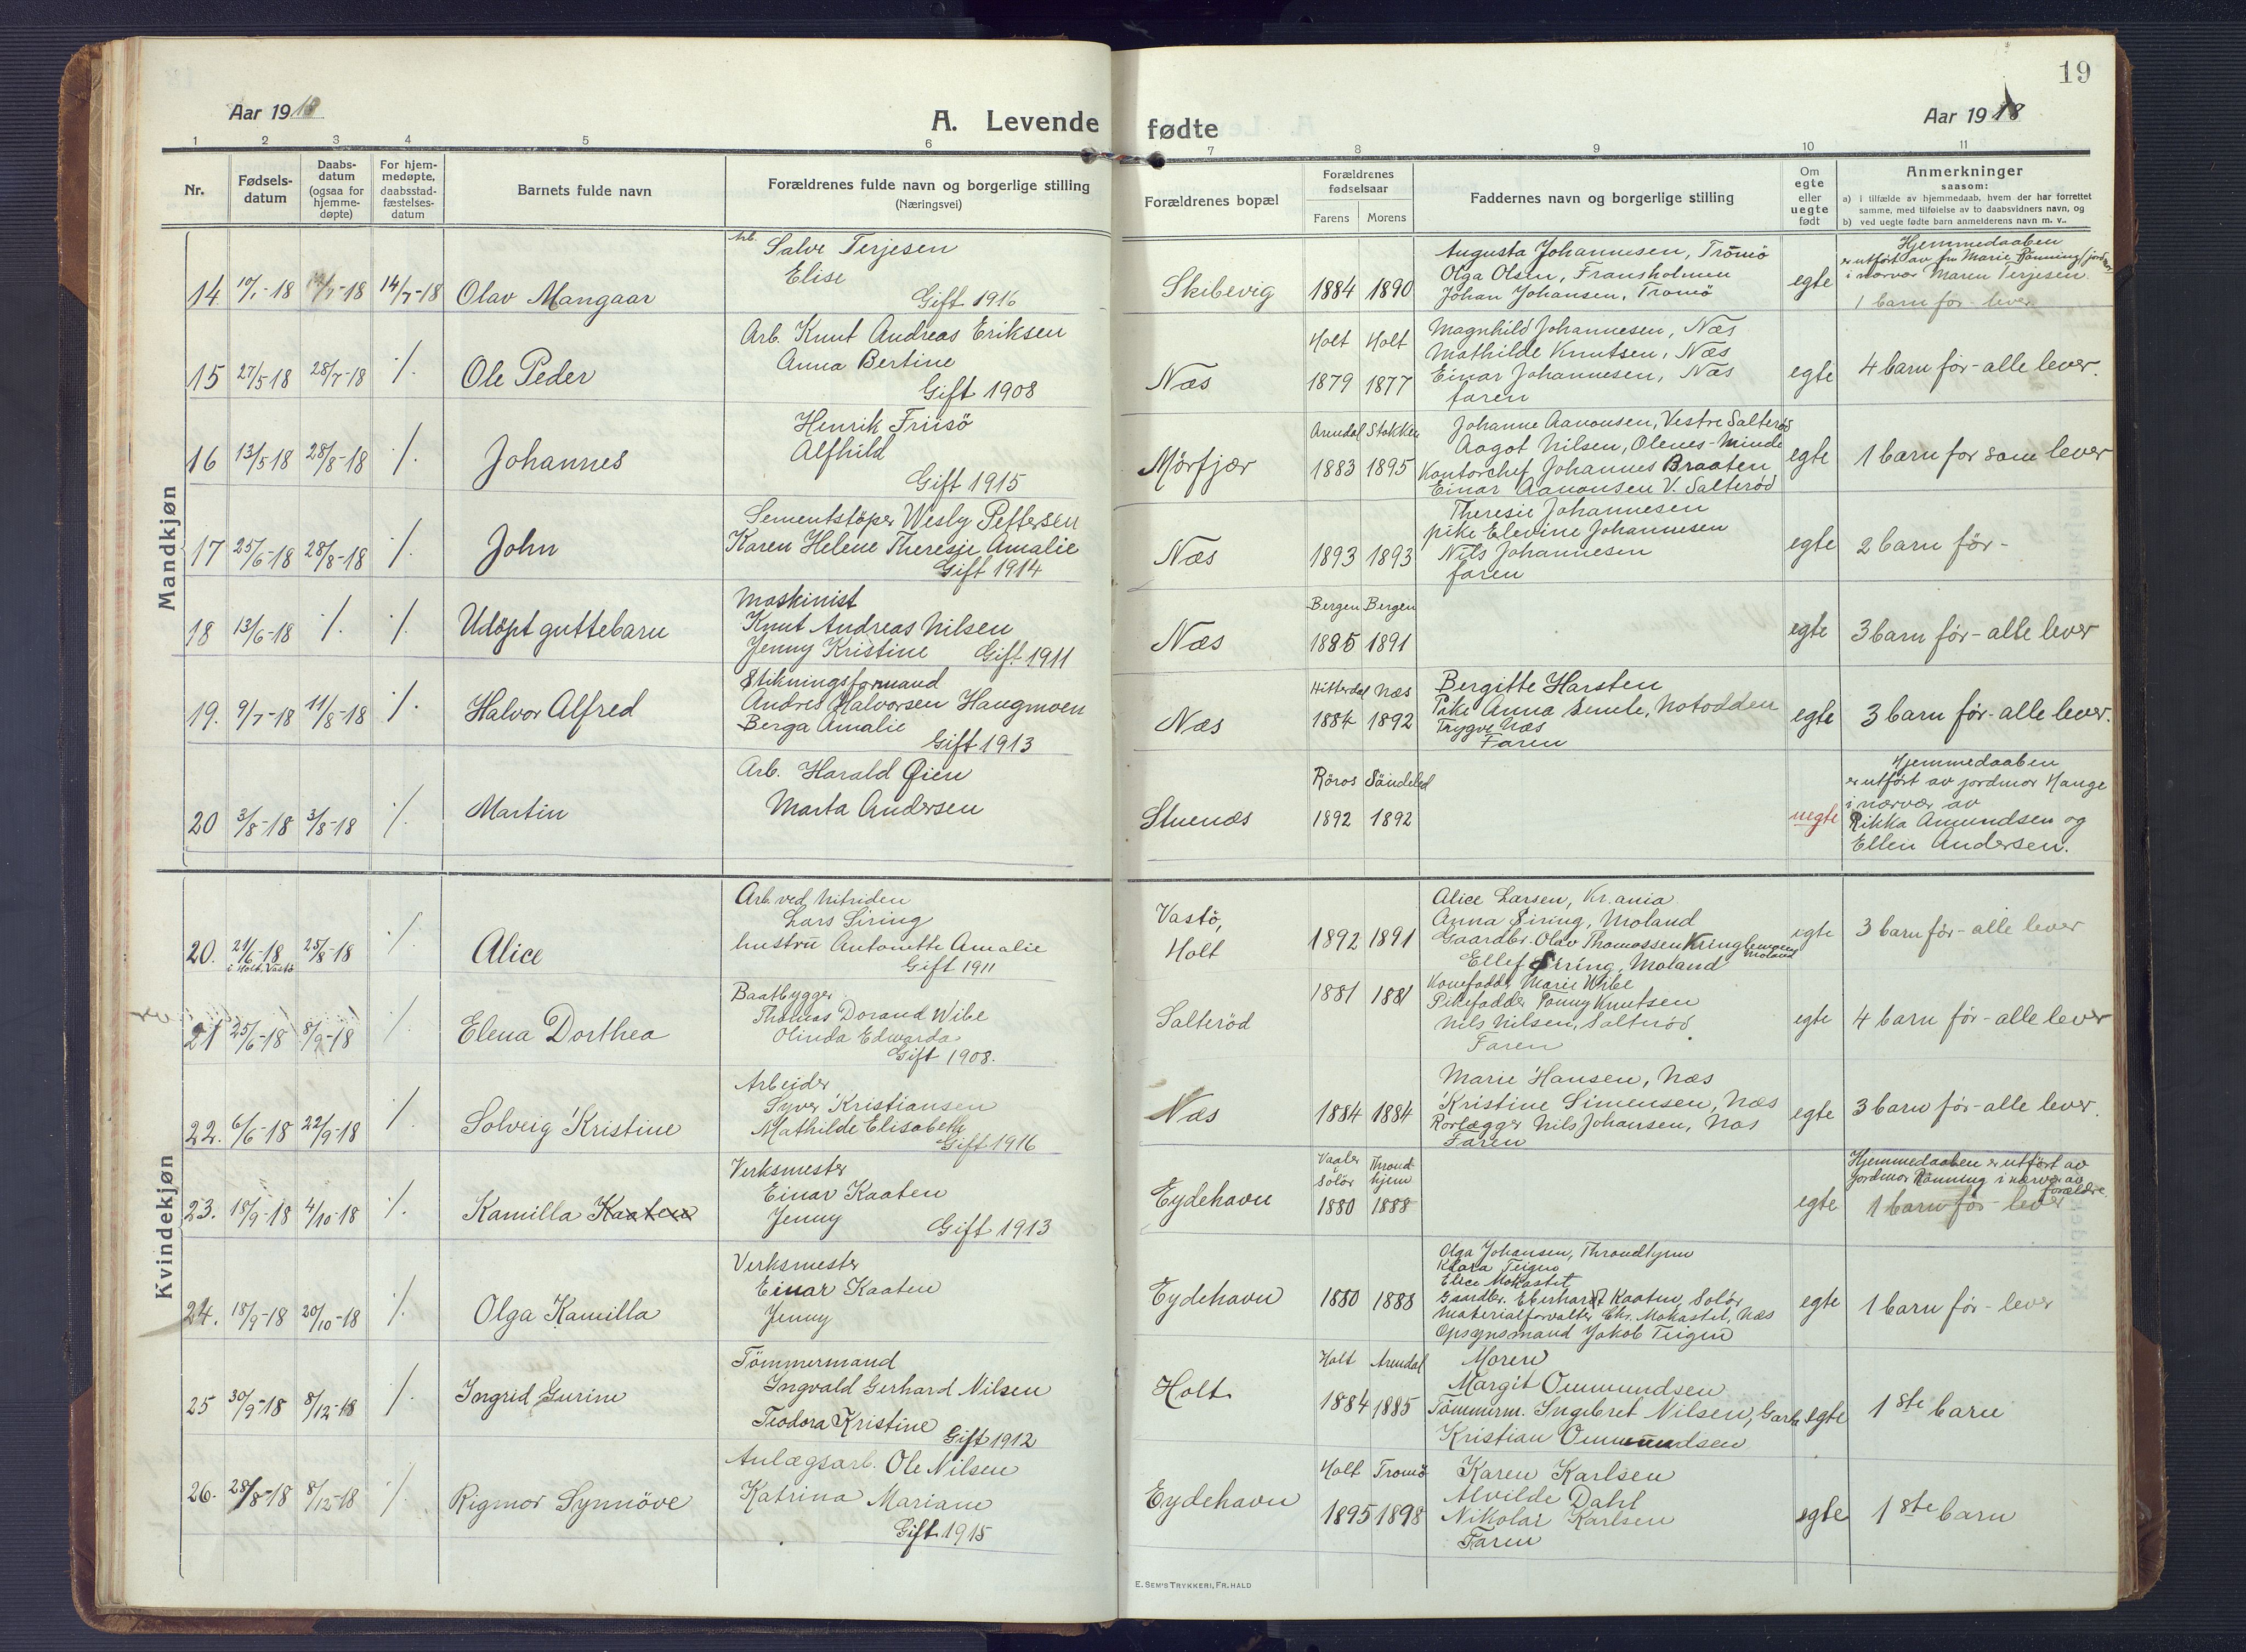 19
Aar 1918
A. Levende fødte
Aar 1918
1 2 3 4 5 6 7 8 9 10 11
Nr.
Fødsels-
datum
Daabs-
datum
(ogsaa for
hjemme-
døpte)
For hjem-
medøpte,
daabsstad-
fæstelses-
datum
Barnets fulde navn
Forældrenes fulde navn og borgerlige stilling
(Næringsvei)
Forældrenes bopæl
Forældrenes
fødselsaar
Farens Morens
Faddernes navn og borgerlige stilling
Om
egte
eller
uegte
født
Anmerkninger
saasom:
a) i tilfælde av hjemmedaab, hvem der har forrettet
samme, med tilføielse av to daabsvidners navn, og
b) ved uegte fødte barn anmelderens navn m. v..
Mandkjøn
14 10/1-18 14/7-18 Olav Mangaar
Arb. Salve Terjesen
Elise
Gift 1916
Skibevig 1884 1890
Augusta Johannesen, Tromö
Olga Olsen, Fransholmen
Johan Johansen, Tromö
egte
Hjemmedaaben
er utført av fru Marie Rønning (jordmor
i nærvær Maren Terjesen.
1 barn før - lever
15 27/5 18 28/7-18 ./. Ole Peder
Arb. Knut Andreas Eriksen
Anna Bertine
Gift 1908
Næs
Holt Holt
1879 1877
Magnhild Johannesen, Næs
Mathilde Knutsen, Næs
Einar Johannesen, Næs
faren
egte 4 barn før - alle lever.
16 13/5 18 28/8-18 ./. Johannes
Henrik Friisö
Alfhild
Gift 1915
Mørfjær
Arendal Stokken
1883 1895
Johanne Aanonsen, Vestre Salterød
Aagot Nilsen, Olenes-Minde
Kontorchef Johannes Braaten
Einar Aanonsen V. Salterød
egte 1 barn før som lever
17 25/6-18 28/8-18 ./. John
Sementstöper Wesly Pettersen
Karen Helene Theresie Amalie
Gift 1914
Næs 1893 1893
Theresie Johannesen
pike Elevine Johannesen
Nils Johannesen
faren
egte 2 barn før -
18 13/6-18 ./. ./. Udöpt guttebarn
Maskinist
Knut Andreas Nilsen
Jenny Kristine Gift 1911
Næs
Bergen Bergen
1885 1891
egte 3 barn før - alle lever
19. 9/7-18 11/8-18 ./. Halvor Alfred
Stikningsformand
Andres Halvorsen Haugmoen
Berga Amalie
Gift 1913
Næs
Hitterdal Næs
1884 1892
Bergitte Harsten
Pike Anna Semle, Notodden
Trygve Næs
Faren
egte 3 barn før - alle lever.
20 3/8-18 3/8-18 ./. Martin
Arb. Harald Øien
Marta Andersen
Stuenæs
Röros Söndeled
1892 1892
uegte
Hjemmedaaben
er utført av jordmor Hauge
i nærvær av
Rikka Amundsen og
Ellen Andersen.
Kvindekjøn
20. 21/6-18 25/8-18 ./. Alice
i Holt, Vastö
Arb. ved Nitriden
Lars Siring
hustru Antonette Amalie
Gift 1911
Vastö,
Holt
1892 1891
Alice Larsen, Kr.ania
Anna Siring, Moland
Gaardbr. Olav Thomassen Kringlemoen
Moland
Ellef Siring, Moland
egte 3 barn før - alle lever
21 25/6-18 8/9-18 ./. Elena Dorthea
Baatbygger
Thomas Dorand Wibe
Olinda Edvarda
Gift 1908.
Salterød 1881 1881
Konefadder Marie Wibe
Pikefadder Tonny Knutsen
Nils Nilsen, Salterød
Faren
egte 4 barn før - alle lever
22. 6/6-18 22/9-18 ./. Solveig Kristine
Arbeider
Syver Kristiansen
Mathilde Elisabeth
Gift 1916
Næs 1884 1884
Marie Hansen, Næs
Kristine Simensen, Næs
Rørlægger Nils Johansen, Næs
Faren
egte 3 barn før - alle lever.
23. 18/9-18 4/10-18 ./. Kamilla Kaaten
Verksmester
Einar Kaaten
Jenny
Gift 1913
Eydehavn
Vaaler
Solör
Thrond-
hjem
1880 1888
egte
Hjemmedaaben er utført av
jordmor Rønning i nærvær av
forældre.
1 barn før - lever
24. 18/9-18 20/10-18 ./. Olga Kamilla
Verksmester
Einar Kaaten
Jenny
Eydehavn 1880 1888
Olga Johansen, Throndhjem
Klara Teigen
Elice Mokastet
Gaardbr. Eberhardt Kaaten, Solör
Materialforvalter Chr. Mokastet, Næs
Opsynsmand Jakob Teigen
egte 1 barn før - lever
25 30/9-18 8/12-18 ./. Ingrid Gurine
Tömmermand
Ingvald Gerhard Nilsen
Teodora Kristine Gift 1912
Holt
Holt Arendal
1884 1885
Moren
Margit Ommundsen
Tömmerm. Ingebret Nilsen, Garta
Kristian Ommundsen
egte 1ste barn
26. 28/8-18 8/12-18 ./. Rigmor Synnöve
Anlægsarb. Ole Nilsen
Katrina Mariane
Gift 1915
Eydehavn
Holt Tromö
1895 1898
Karen Karlsen
Alvilde Dahl
Nikolai Karlsen
Faren
egte 1ste barn
E. SEM'S TRYKKERI, FR.HALD